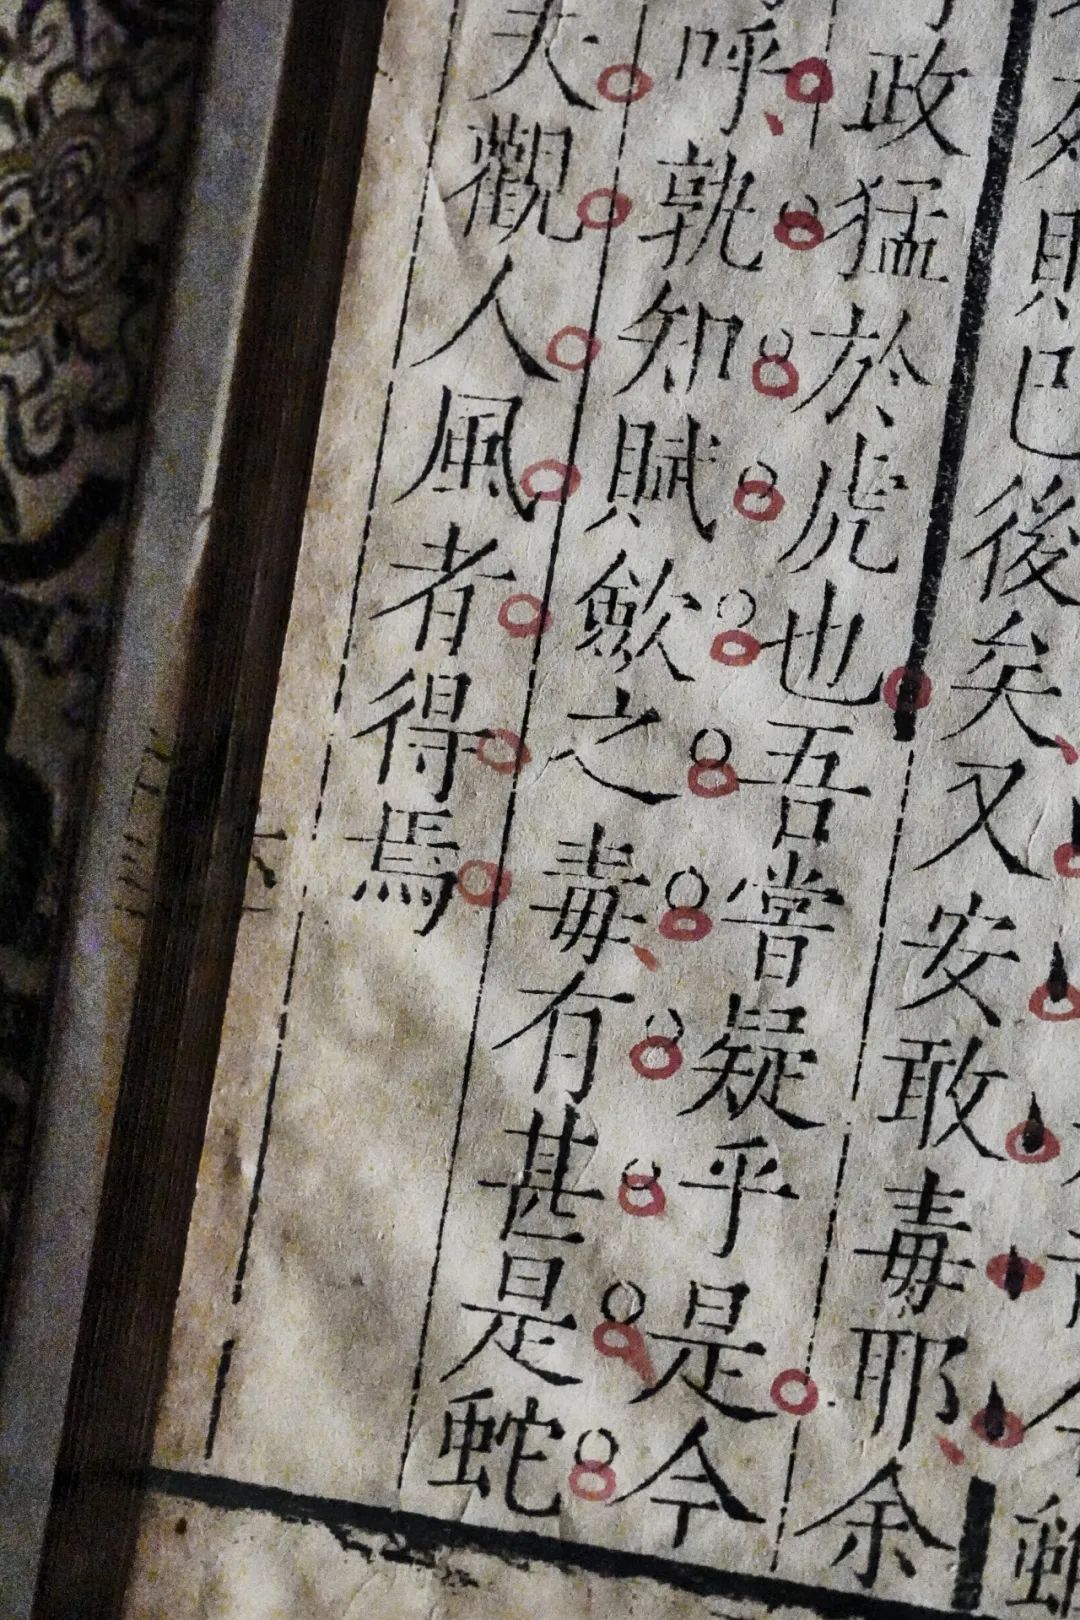 雖
則已後矣又安敢毒耶余
政猛於虎也吾嘗疑乎是今
呼孰知賦歛之毒有甚是蛇
夫觀人風者得焉